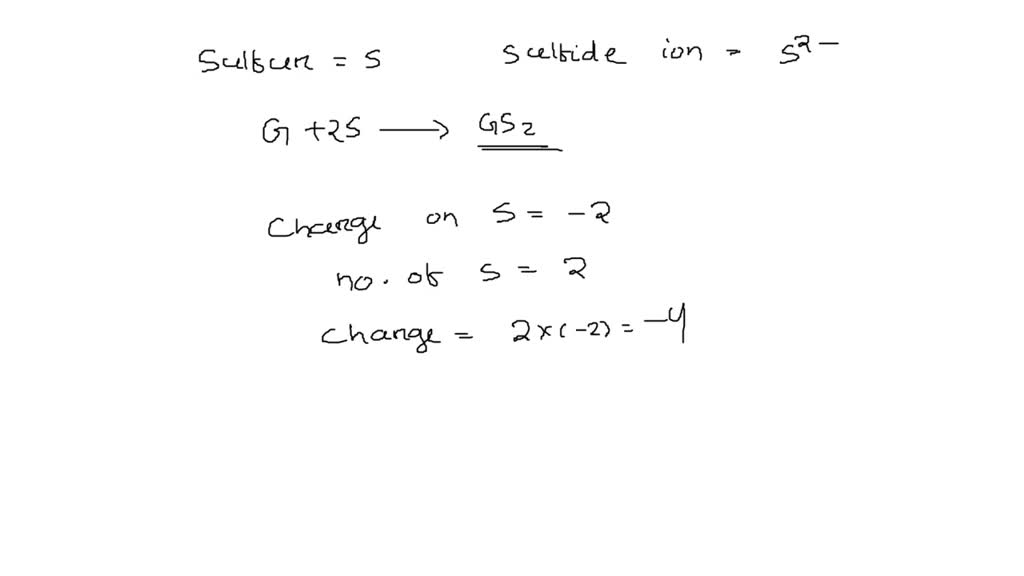 Sulfur = S    Sulfide ion = S²⁻
G + 2S ⟶ GS₂
Charge on S = -2
no. of S = 2
Charge = 2 x (-2) = -4